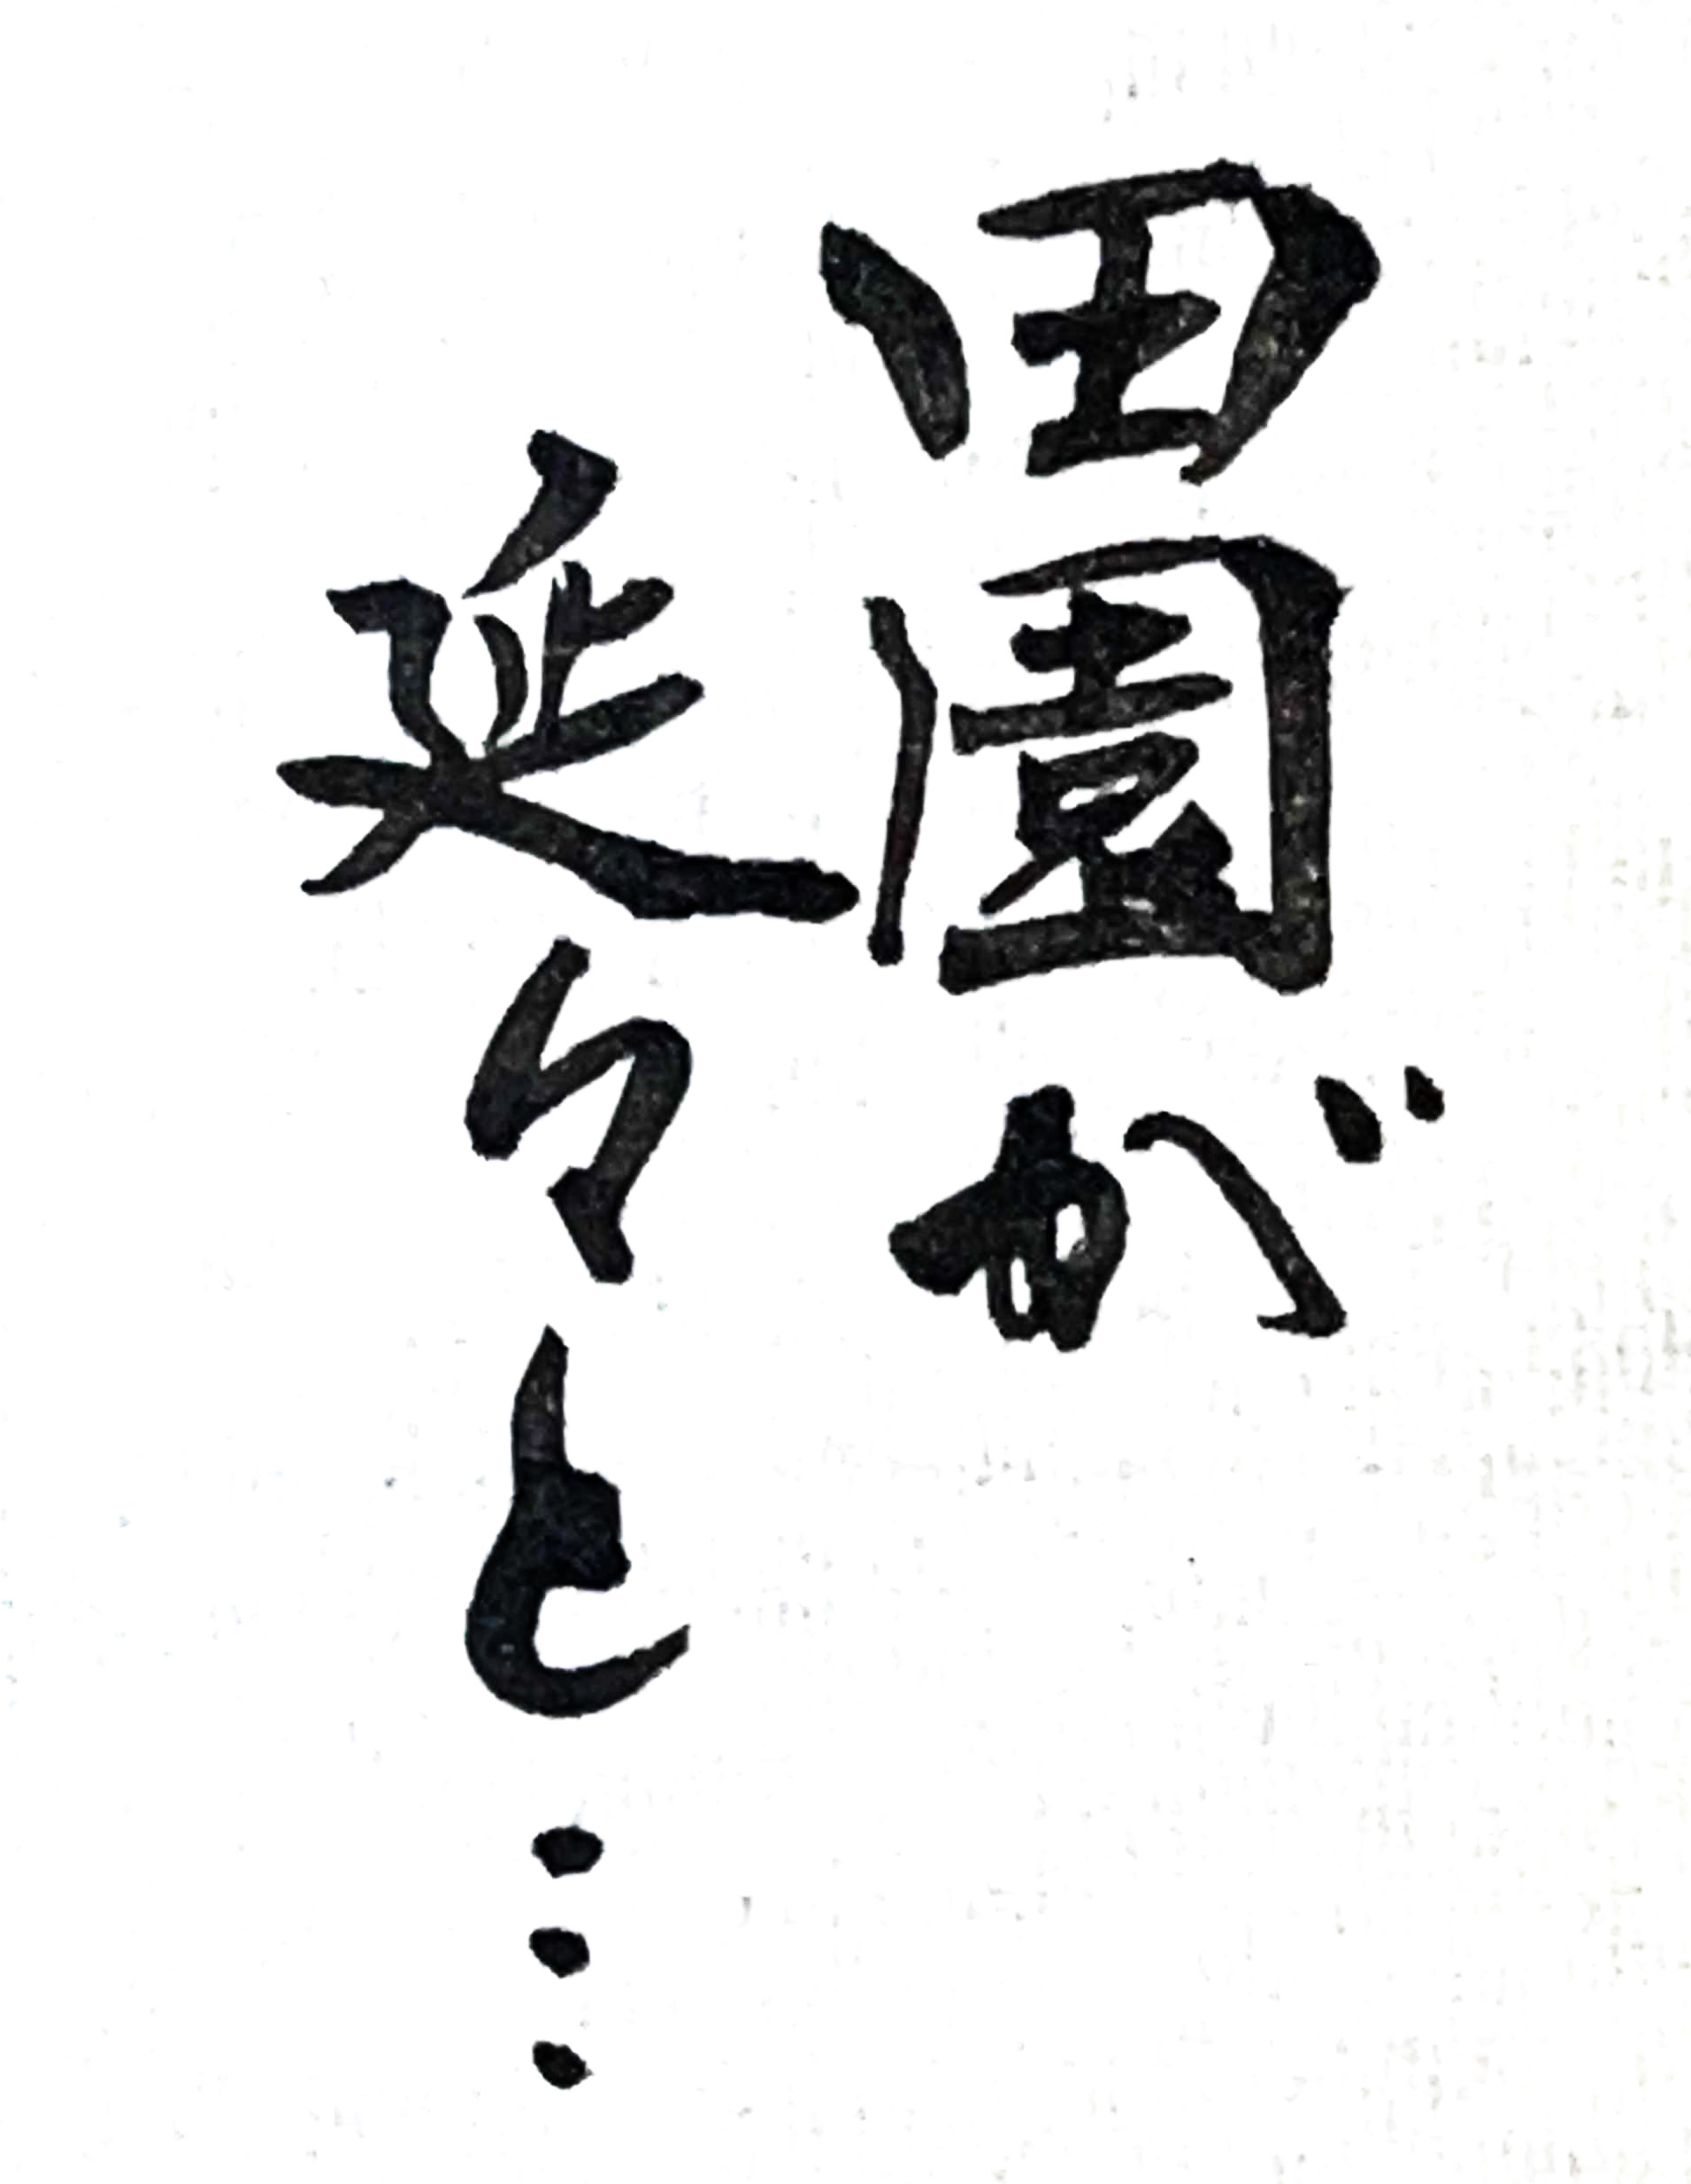 田園が
延々と…